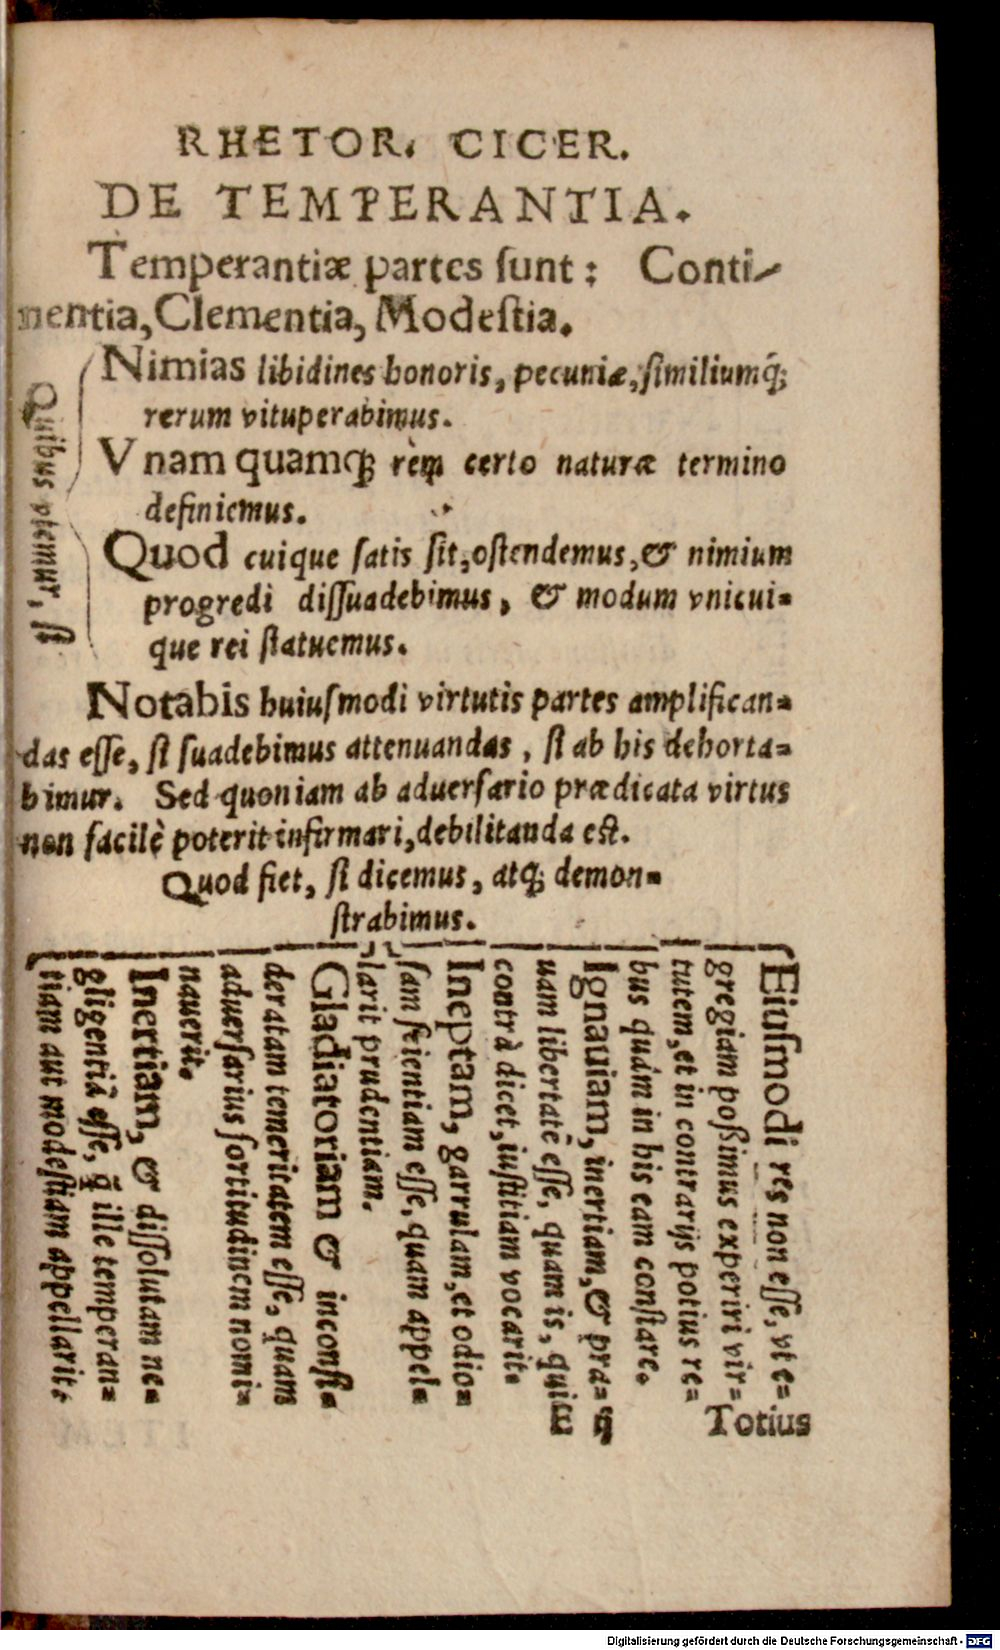 RHETOR. CICER.
DE TEMPERANTIA.
Temperantiæ partes ſunt: Conti-
nentia, Clementia, Modeſtia.
Quibus vtemur, ſi
Nimias libidines honoris, pecuniæ, ſimiliumq́;
rerum vituperabimus.
Vnam quamq; rem certo naturæ termino
definiemus.
Quod cuique ſatis ſit, oſtendemus, & nimium
progredi diſſuadebimus, & modum vnicui=
que rei ſtatuemus.
Notabis huiuſmodi virtutis partes amplifican=
das eſſe, ſi ſuadebimus attenuandas, ſi ab his dehorta=
bimur. Sed quoniam ab aduerſario prædicata virtus
non facilè poterit infirmari, debilitanda eſt.
Quod fiet, ſi dicemus, atq; demon=
ſtrabimus.
Eiuſmodi res non eſſe, vt e=
gregiam poßimus experiri vir=
tutem, et in contrarijs potius re=
bus quàm in his eam conſtare.
Ignauiam, inertiam, & pra=
uam libertatē eſſe, quam is, qui
contrà dicet, iuſtitiam vocarit.
Ineptam, garrulam, et odio=
ſam ſcientiam eſſe, quam appel=
larit prudentiam.
Gladiatoriam & inconſi=
deratam temeritatem eſſe, quam
aduerſarius fortitudinem nomi=
nauerit.
Inertiam, & diſſolutam ne=
gligentiā eſſe, q̄ ille temperan=
tiam aut modeſtiam appellarit.
Totius
Digitalisierung gefördert durch die Deutsche Forschungsgemeinschaft - DFG